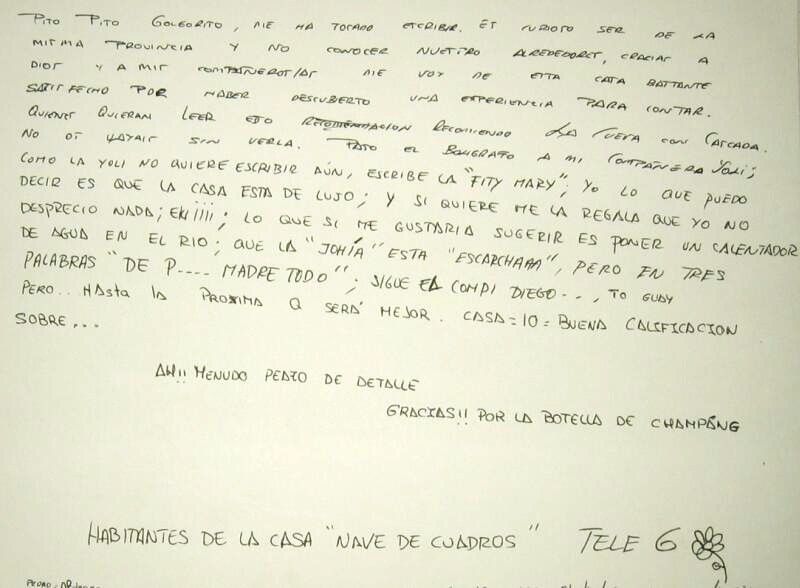 PITO PITO GOLGORITO, ME HA TOCADO ESCRIBIR. ES CURIOSO SER DE LA
MISMA PROVINCIA Y NO CONOCER NUESTRO ALREDEDORES, GRACIAS A
DIOS Y A MIS COMPAÑEROS/AS ME VOY DE ESTA CASA BASTANTE
SATISFECHO POR HABER DESCUBERTO UNA EXPERIENCIA PARA CONTAR.
QUIENES QUIERAM LEER ESTO RECOMIENDO LA CUEVA CON CASCADA.
NO OS VAYAIS SIN VERLA. PASO EL BOLIGRAFO A MI COMPAÑERA YOLI;
COMO LA YOLI NO QUIERE ESCRIBIR AÚN, ESCRIBE LA "FITY MARY"; YO LO QUE PUEDO
DECIR ES QUE LA CASA ESTA DE LUJO; Y SI QUIERE ME LA REGALA QUE YO NO
DESPRECIO NADA; EH ¡¡¡¡; LO QUE SI ME GUSTARIA SUGERIR ES PONER UN CALENTADOR
DE AGUA EN EL RIO; QUE LA "JOHÍA" ESTA "ESCARCHAAA", PERO EN TRES
PALABRAS "DE P.... MADRE TODO"; SIGUE EL COMPI DIEGO..., TO GUAY
PERO.. HASTA LA PROXIMA Q SERÁ MEJOR. CASA=10=BUENA CALIFICACION
SOBRE...
AH!! MENUDO PEAZO DE DETALLE
GRACIAS!! POR LA BOTELLA DE CHAMPÁNG
HABITANTES DE LA CASA "NAVE DE CUADROS" TELE 6